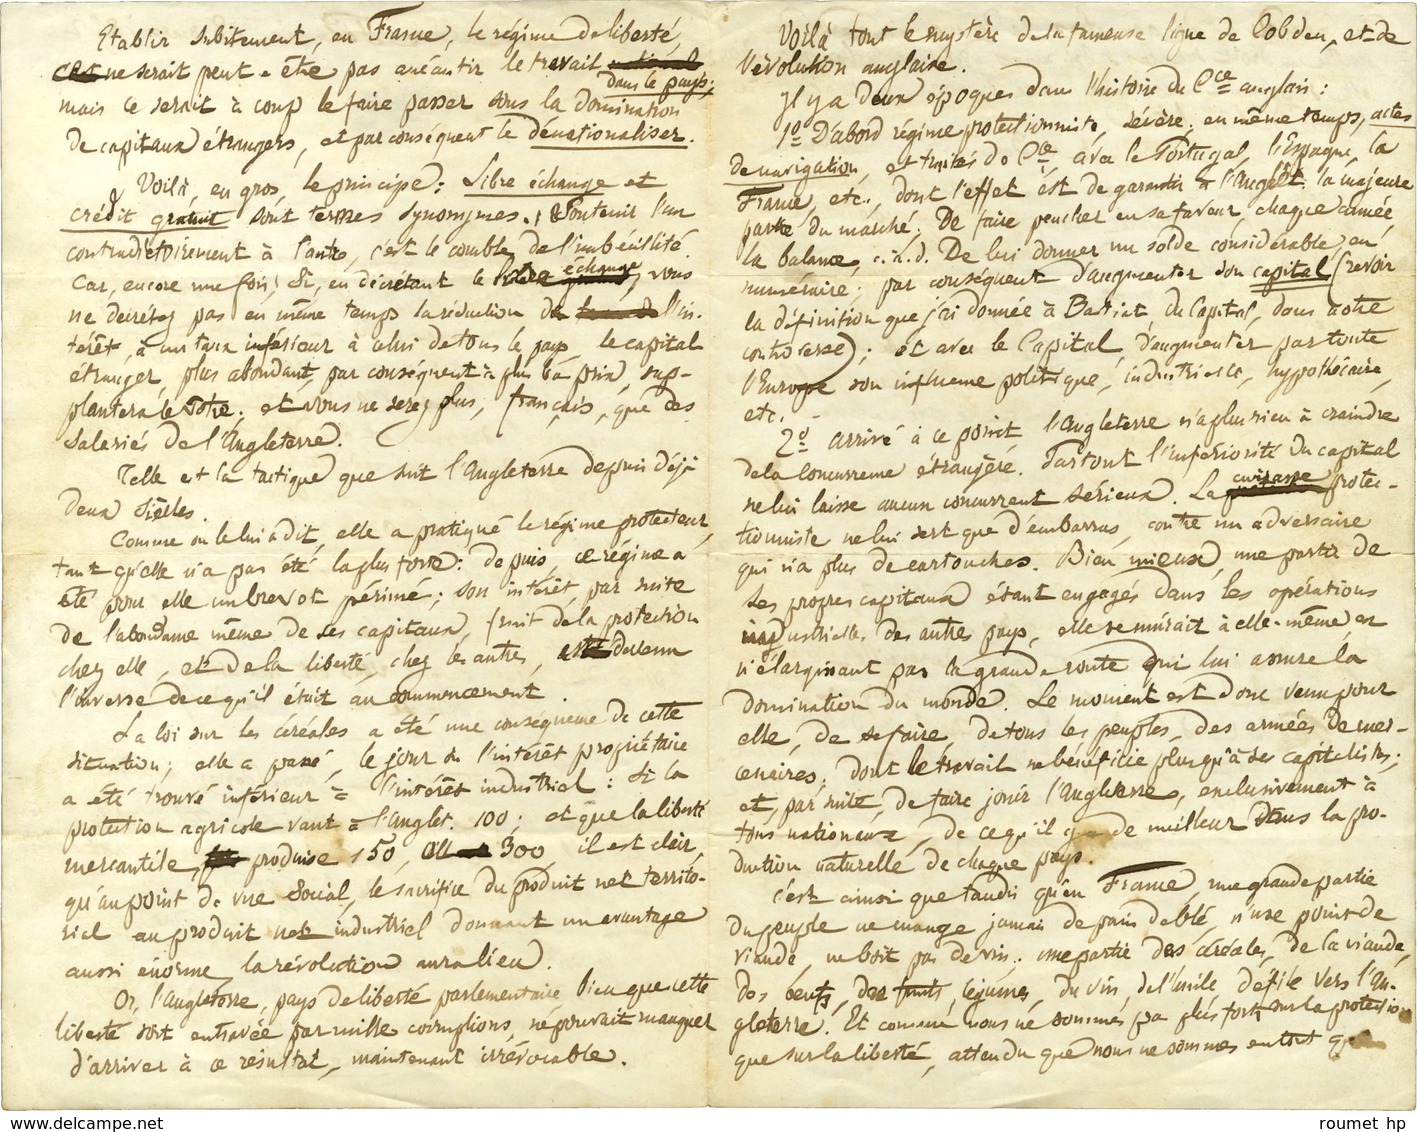 Etablir subitement, en France, le régime de liberté,
ce ne serait peut-être pas anéantir le travail national
dans le pays;
mais ce serait à coup le faire passer sous la domination
de capitaux étrangers, et par conséquent le dénationaliser.
Voilà, en gros, le principe: Libre échange et
crédit gratuit sont termes synonymes. Soutenir l'un
contradictoirement à l'autre, c'est le comble de l'imbécillité.
Car, encore une fois, si, en décrétant le libre échange, vous
ne décrétez pas en même temps la réduction de l'in-
térêt, à un taux inférieur à celui de tous les pays, le capital
étranger, plus abondant, par conséquent à plus bas prix, sup-
plantera le vôtre; et vous ne serez plus, français, que des
salariés de l'Angleterre.
Telle est la tactique que suit l'Angleterre depuis déjà
deux siècles.
Comme on le lui a dit, elle a pratiqué le régime protecteur,
tant qu'elle n'a pas été la plus forte: depuis, ce régime a
été pour elle un brevet périmé; son intérêt, par suite
de l'abondance même de ses capitaux, fruit de la protection
chez elle, et de la liberté chez les autres, est devenu
l'inverse de ce qu'il était au commencement.
La loi sur les céréales a été une conséquence de cette
situation; elle a passé, le jour où l'intérêt propriétaire
a été trouvé inférieur à l'intérêt industriel: Si la
protection agricole vaut à l'Anglet. 100; et que la liberté
mercantile, produise 150, 300, il est clair,
qu'au point de vue social, le sacrifice du produit net territo-
rial au produit net industriel donnant un avantage
aussi énorme, la révolution aura lieu.
Or, l'Angleterre, pays de liberté parlementaire, bien que cette
liberté soit entravée par mille corruptions, ne pouvait manquer
d'arriver à ce résultat, maintenant irrévocable.
Voilà tout le mystère de la fameuse ligue de Cobden, et de
l'évolution anglaise.
Il y a deux époques dans l'histoire du Cce anglais:
1o D'abord régime protectionniste, sévère; en même temps, actes
de navigation, et traités de Cce, avec le Portugal, l'Espagne, la
France, etc., dont l'effet est de garantir à l'Anglet. la majeure
partie du marché; De faire pencher en sa faveur, chaque année,
la balance, c.à.d. De lui donner un solde considérable, en
numéraire; par conséquent d'augmenter son capital (revoir
la définition que j'ai donnée à Bastiat du Capital, dans notre
controverse); et avec le Capital, d'augmenter par toute
l'Europe son influence politique, industrielle, hypothécaire,
etc. -
2o arrivé à ce point, l'Angleterre n'a plus rien à craindre
de la concurrence étrangère. Partout l'infériorité du capital
ne lui laisse aucun concurrent sérieux. La cuirasse protec-
tionniste ne lui sert que d'embarras, contre un adversaire
qui n'a plus de cartouches. Bien mieux, une partie de
ses propres capitaux étant engagés dans les opérations
industrielles des autres pays, elle se nuirait à elle-même, en
n'élargissant pas la grande route qui lui assure la
domination du monde. Le moment est donc venu pour
elle, de se faire, de tous les peuples, des armées de mer-
cenaires, dont le travail ne bénéficie plus qu'à ses capitalistes;
et, par suite, de faire jouir l'Angleterre, exclusivement à
tous nationaux, de ce qu'il y a de meilleur dans la pro-
duction naturelle de chaque pays.
C'est ainsi que tandis qu'en France, une grande partie
du peuple ne mange jamais de pain de blé, n'use point de
viande, ne boit pas de vin; une partie des céréales, de la viande,
des œufs, des fruits, légumes, du vin, de l'huile défile vers l'An-
gleterre. Et comme nous ne sommes pas plus forts sur la protection
que sur la liberté, attendu que nous ne sommes en tout
roumet hp